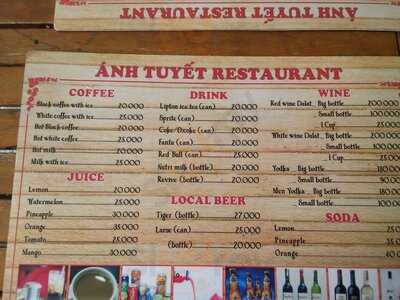 ÁNH TUYẾT RESTAURANT
ÁNH TUYẾT RESTAURANT
COFFEE
Black coffee with ice 20.000
White coffee with ice 25.000
Hot Black coffee 20.000
Hot white coffee 25.000
Hot milk 20.000
Milk with ice 25.000
JUICE
Lemon 20.000
Watermelon 25.000
Pineapple 30.000
Orange 35.000
Tomato 25.000
Mango 30.000
DRINK
Lipton ice tea (can) 20.000
Sprite (can) 20.000
Coke/Dcoke (can) 20.000
Fanta (can) 20.000
Red Bull (can) 25.000
Nutri milk (bottle) 20.000
Revive (bottle) 20.000
LOCAL BEER
Tiger (bottle) 27.000
Larue (can) 25.000
(bottle) 20.000
WINE
Red wine Dalat Big bottle 200.000
Small bottle 100.000
1 Cup 25.000
White wine Dalat Big bottle 200.000
Small bottle 100.000
1 Cup 25.000
Vodka Big bottle 180.000
Small bottle 90.000
Men Vodka Big bottle 180.000
Small bottle 100.000
SODA
Lemon 25.000
Pineapple 35.000
Orange 40.000